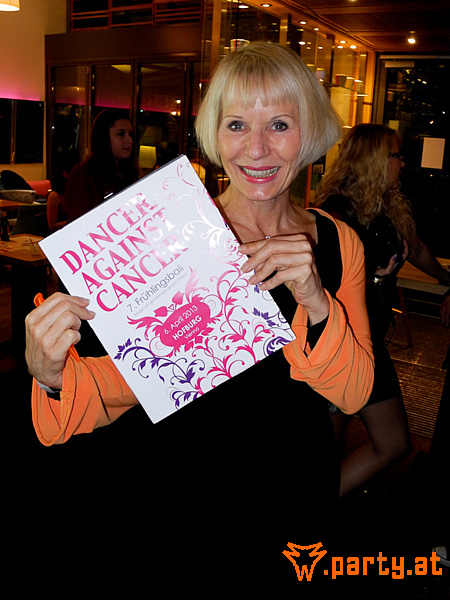 DANCER
AGAINST
CANCER
7. Frühlingsball
6. April 2013
HOFBURG
Vienna
W.party.at